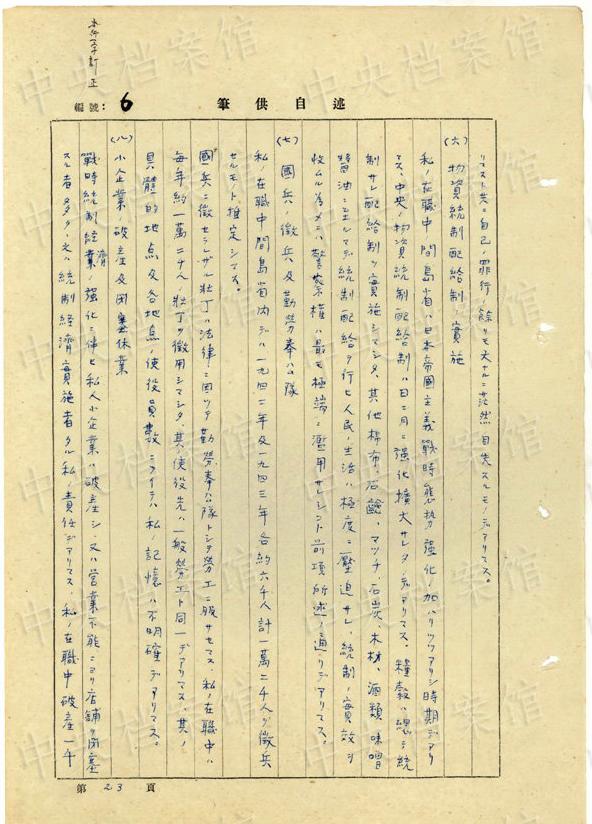 本行一字訂正
編號: 6
筆供自述
リマスト共ニ自己ノ罪行ノ餘リモ大ナルニ茫然自失スルモノデアリマス。
(六) 物資統制配給制ノ實施
私ノ在職中間島省ハ日本帝國主義戰時態勢強化ノ加ハリツツアリシ時期デアリ
マス、中央ノ物資統制配給制ハ日ニ月ニ強化擴大サレタノデアリマス。糧穀ハ總テ統
制サレ配給制ヲ實施シマシタ、其他棉布、石鹼、マツチ、石炭、木材、酒類、味噌
醬油ニ至ルマデ統制配給ヲ行ヒ人民ノ生活ハ極度ニ壓迫サレ、統制ノ實效ヲ
收ムル爲メニハ警察權ハ最モ極端ニ濫用サレシコト前項所述ノ通リデアリマス。
(七) 國兵ノ徵兵及勤勞奉公隊
私ノ在職中間島省内デハ一九四二年及一九四三年各約六千人計一萬二千人ヲ徵兵
セルモノト推定シマス。
國兵ニ徵セラレザル壯丁ハ法律ニ因ツテ勤勞奉公隊トシテ勞工ニ服サセマス、私ノ在職中ハ
每年約一萬二千人ノ壯丁ヲ徵用シマシタ、其ノ使役先ハ一般勞工ト同一デアリマス、其ノ
具體的地点及各地点ノ使役員數ニツイテハ私ノ記憶ハ不明確デアリマス。
(八) 小企業ノ破産及閉業休業
戰時統制經濟ノ強化ニ伴ヒ私人小企業ハ破産シ、又ハ營業不能ニヨリ店鋪ヲ閉塞
スル者多ク、之ハ統制経濟實施者タル私ノ責任デアリマス、私ノ在職中破産一千
第 23 頁
中央档案馆